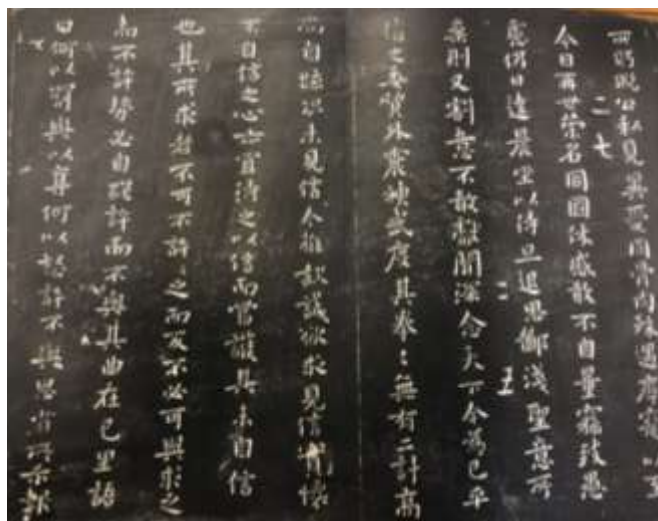 所盱睨公私見異愛同骨肉殊遇厚寵以至
二七
今日再世榮名同國休慼敢不自量竊致愚
慮仍日達晨坐以待旦退思鄙淺聖意所
二五
棄則又割意不敢獻聞深念天下今為已平
權之委質外震神武度其拳〻無有二計高
尚自疏況未見信今推款誠欲求見信實懷
不自信之心亦宜待之以信而當護其未自信
也其所求者不可不許〻之而反不必可與求之
而不許勢必自絕許而不與其曲在己里語
曰何以罰與以奪何以怒許不與思省所示報